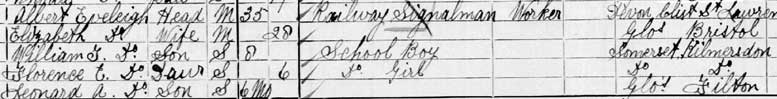 Albert Eveleigh Head M 35 Railway Signalman Worker Devon Clist St Lawren
Elizabeth Do Wife M 28 Glos Bristol
William J. Do Son S 8 School Boy Somerset Kilmersdon
Florence E. Do Daur S 6 Do Girl Do Do
Leonard A. Do Son S 6 Mo Glos Filton